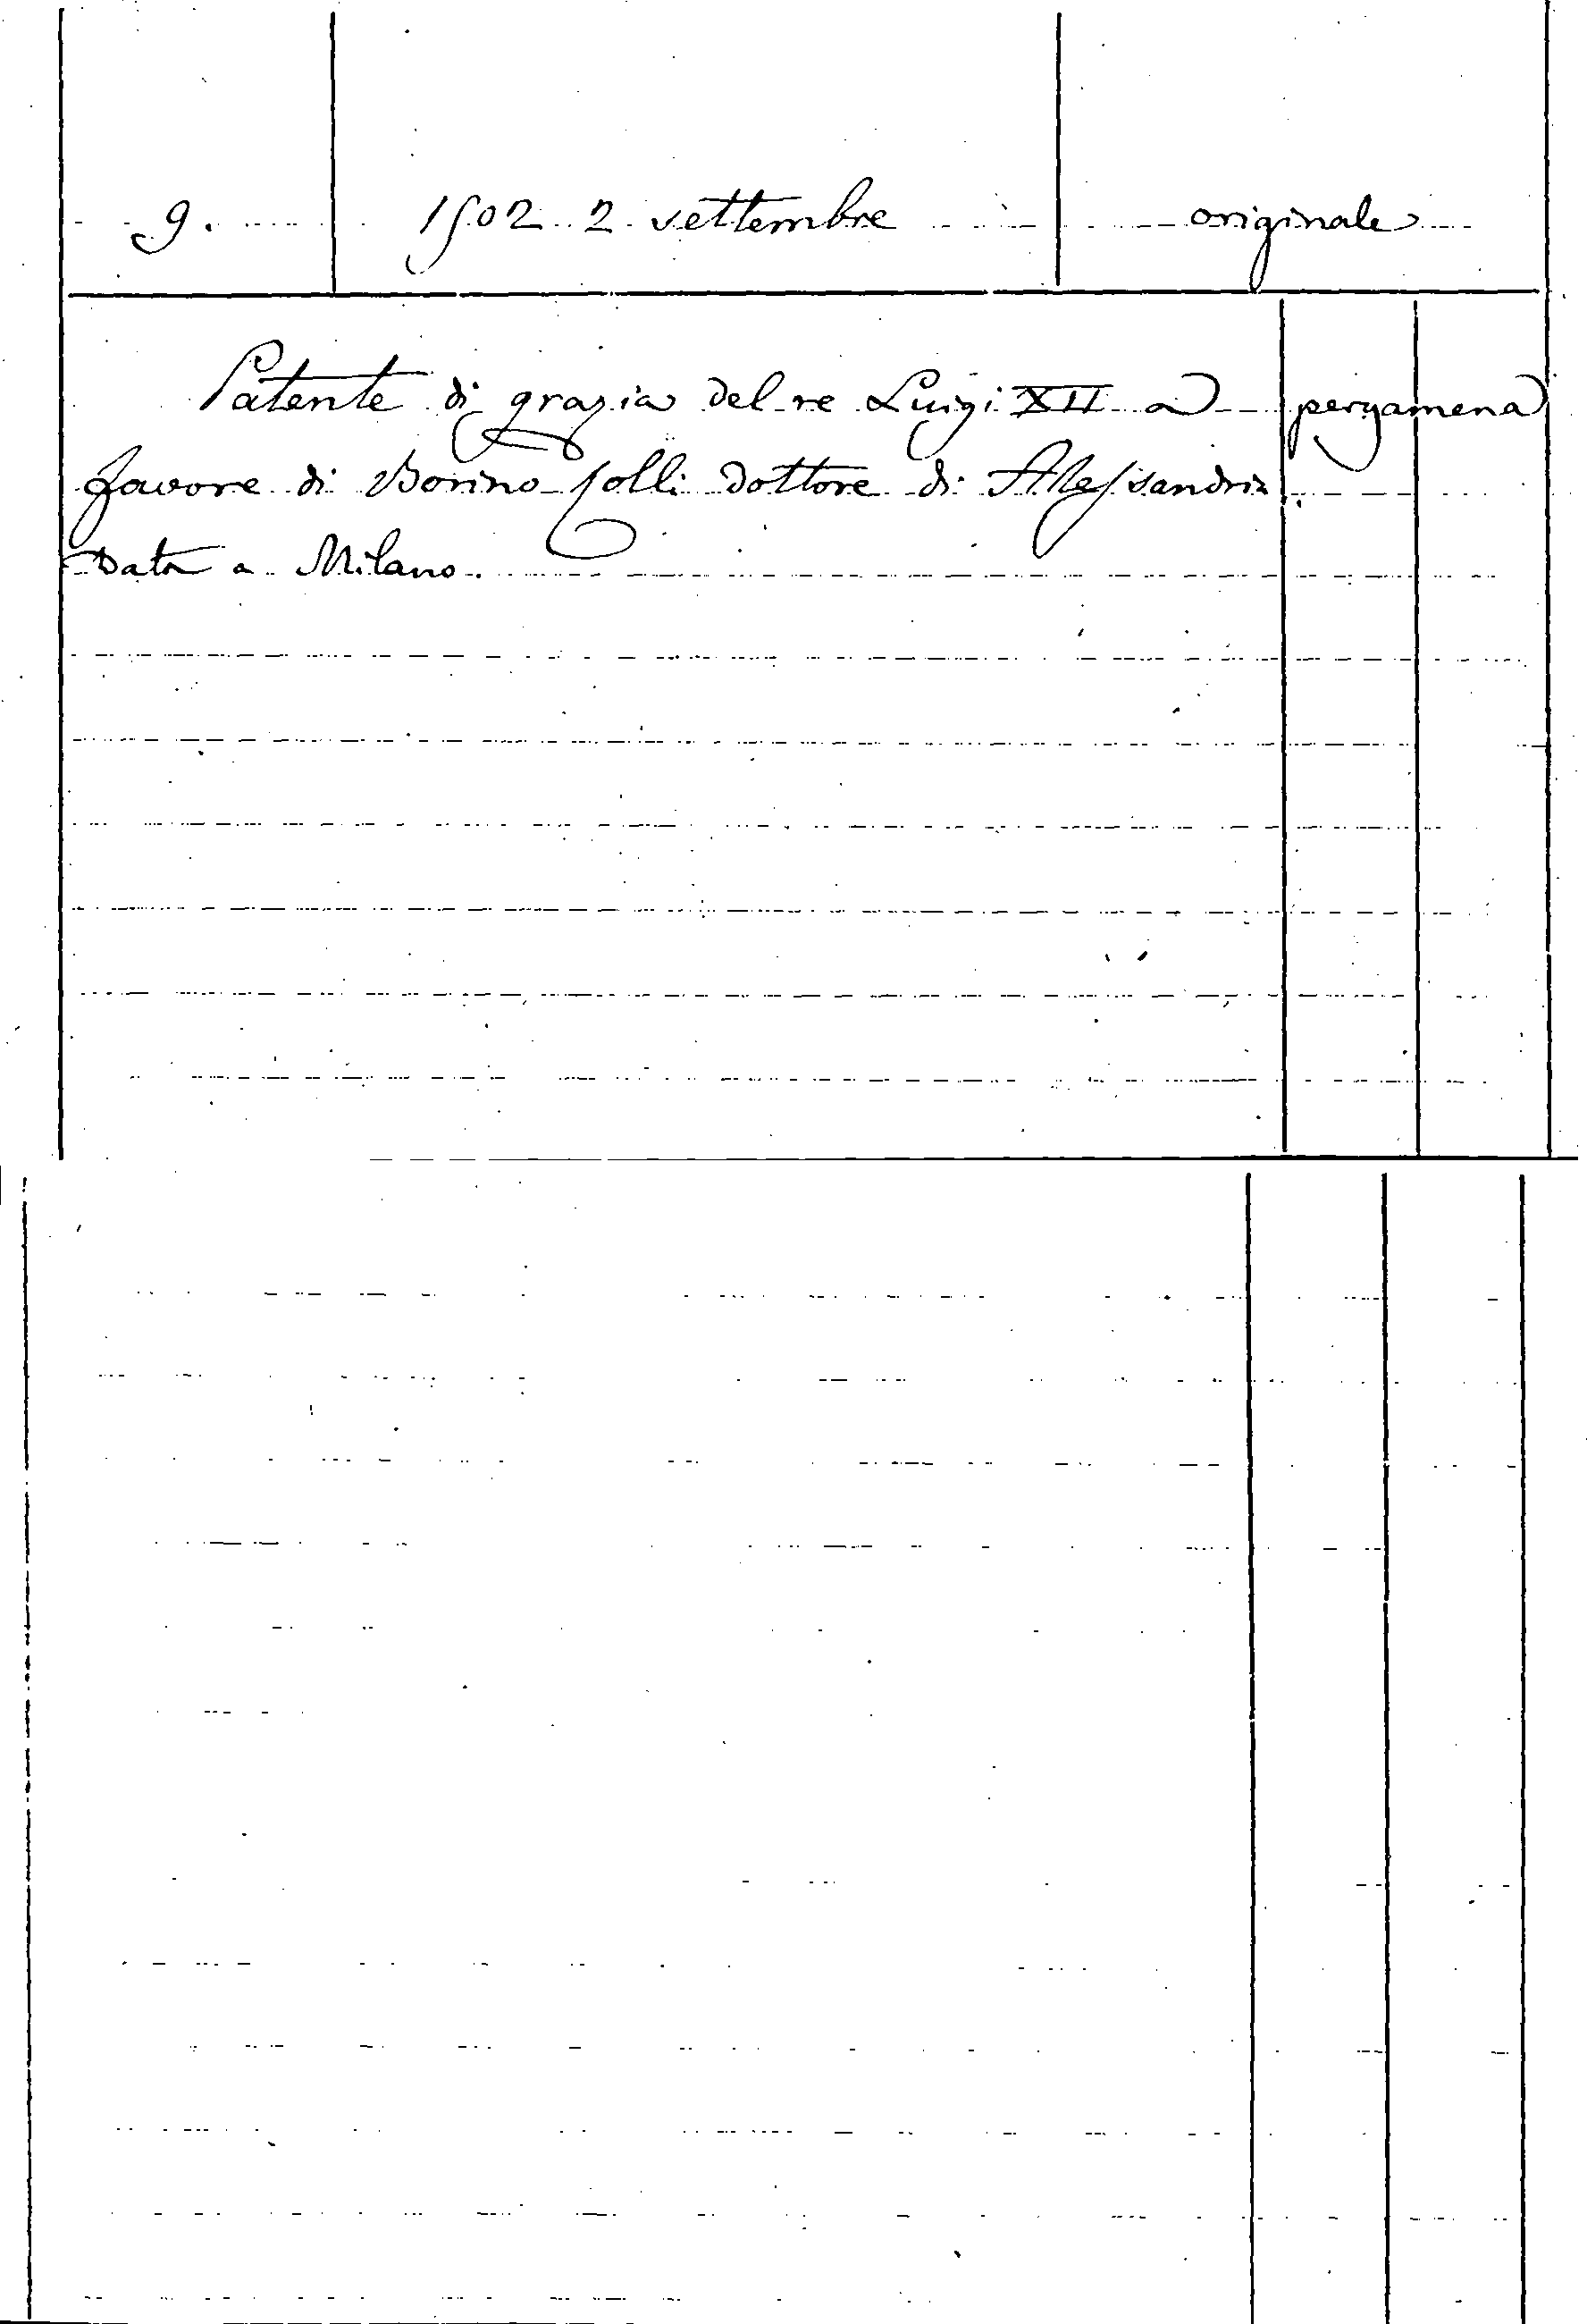 9. 1502 2 settembre originale
Patente di grazia del re Luigi XII a pergamena
favore di Borino Colli dottore di Alessandria.
Data a Milano.